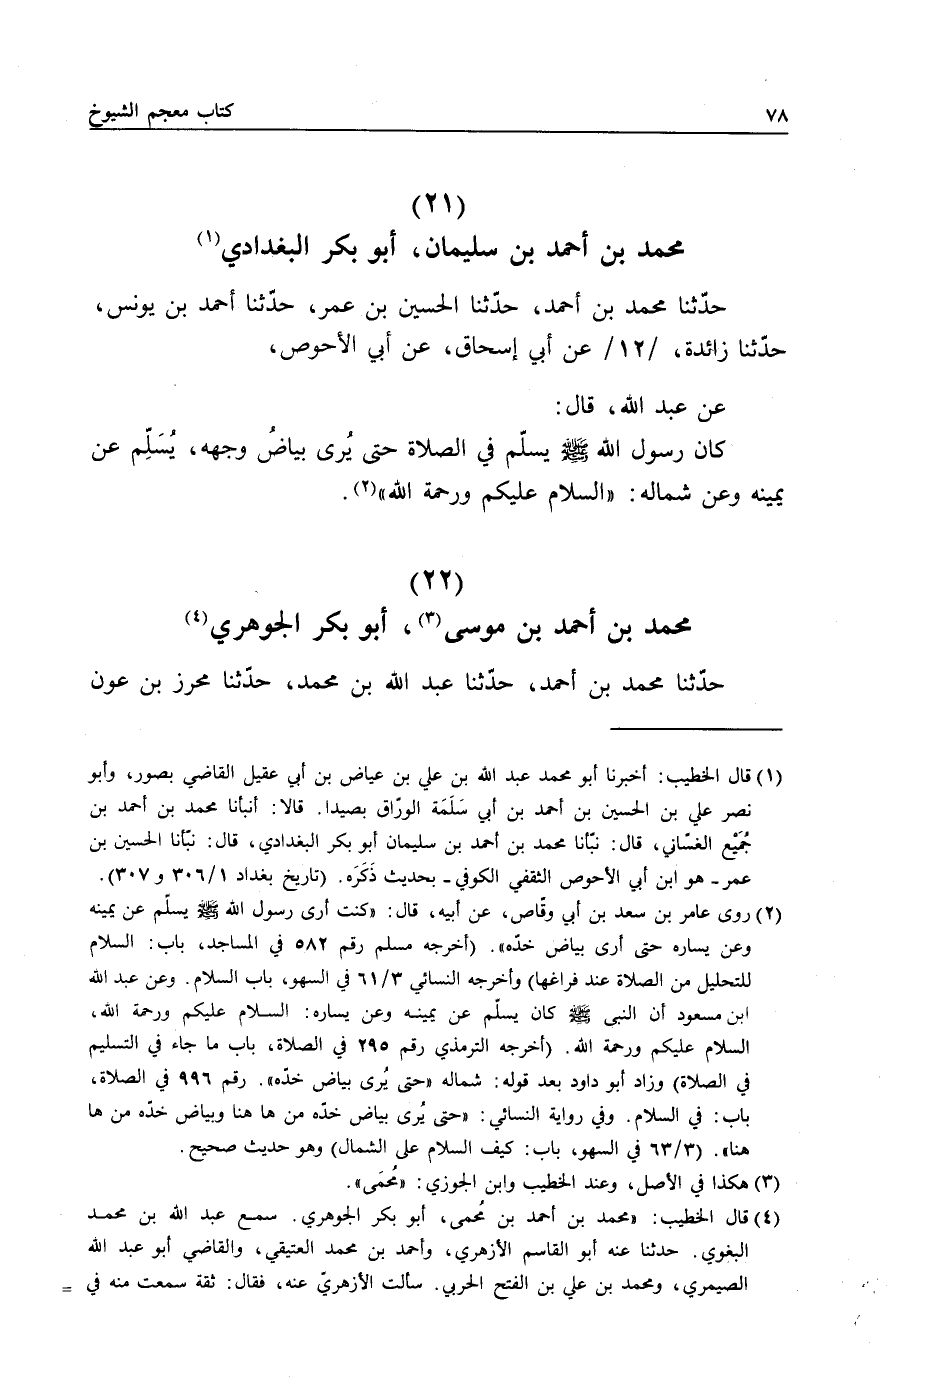 ٧٨
كتاب معجم الشيوخ
(٢١)
محمد بن أحمد بن سليمان، أبو بكر البغدادي(١)
حدّثنا محمد بن أحمد، حدّثنا الحسين بن عمر، حدّثنا أحمد بن يونس،
حدّثنا زائدة، /١٢/ عن أبي إسحاق، عن أبي الأحوص،
عن عبد الله، قال:
كان رسول الله ﷺ يسلّم في الصلاة حتى يُرى بياضُ وجهه، يُسَلِّم عن
يمينه وعن شماله: «السلام عليكم ورحمة الله»(٢).
(٢٢)
محمد بن أحمد بن موسى(٣)، أبو بكر الجوهري(٤)
حدّثنا محمد بن أحمد، حدّثنا عبد الله بن محمد، حدّثنا محرز بن عون
(١) قال الخطيب: أخبرنا أبو محمد عبد الله بن علي بن عياض بن أبي عقيل القاضي بصور، وأبو
نصر علي بن الحسين بن أحمد بن أبي سَلَمَة الورّاق بصيدا. قالا: أنبأنا محمد بن أحمد بن
جُمَيْع الغسّاني، قال: نبّأنا محمد بن أحمد بن سليمان أبو بكر البغدادي، قال: نبّأنا الحسين بن
عمر ـ هو ابن أبي الأحوص الثقفي الكوفي ـ بحديث ذَكَرَه. (تاريخ بغداد ٣٠٦/١ و ٣٠٧).
(٢) روى عامر بن سعد بن أبي وقّاص، عن أبيه، قال: «كنت أرى رسول الله ﷺ يسلّم عن يمينه
وعن يساره حتى أرى بياض خدّه». (أخرجه مسلم رقم ٥٨٢ في المساجد، باب: السلام
للتحليل من الصلاة عند فراغها) وأخرجه النسائي ٦١/٣ في السهو، باب السلام. وعن عبد الله
ابن مسعود أن النبي ﷺ كان يسلّم عن يمينه وعن يساره: السلام عليكم ورحمة الله،
السلام عليكم ورحمة الله. (أخرجه الترمذي رقم ٢٩٥ في الصلاة، باب ما جاء في التسليم
في الصلاة) وزاد أبو داود بعد قوله: شماله «حتى يُرى بياض خدّه». رقم ٩٩٦ في الصلاة،
باب: في السلام. وفي رواية النسائي: «حتى يُرى بياض خدّه من ها هنا وبياض خدّه من ها
هنا». (٦٣/٣ في السهو، باب: كيف السلام على الشمال) وهو حديث صحيح.
(٣) هكذا في الأصل، وعند الخطيب وابن الجوزي: «مُحمَى».
(٤) قال الخطيب: «محمد بن أحمد بن مُحمى، أبو بكر الجوهري. سمع عبد الله بن محمد
البغوي. حدثنا عنه أبو القاسم الأزهري، وأحمد بن محمد العتيقي، والقاضي أبو عبد الله
الصيمري، ومحمد بن علي بن الفتح الحربي. سألت الأزهريّ عنه، فقال: ثقة سمعت منه في =